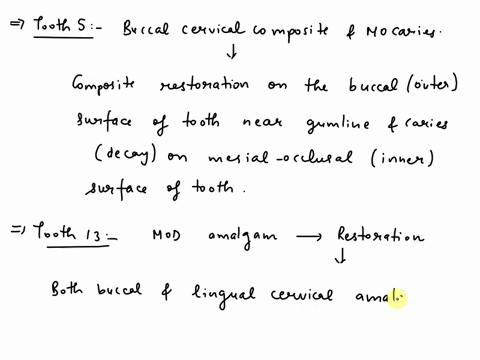 => Tooth 5:- Buccal cervical composite & MO caries.
↓
Composite restoration on the buccal (outer)
surface of tooth near gumline & caries
(decay) on mesial-occlusal (inner)
surface of tooth.
=> Tooth 13:- MOD amalgam → Restoration
↓
Both buccal & lingual cervical amal